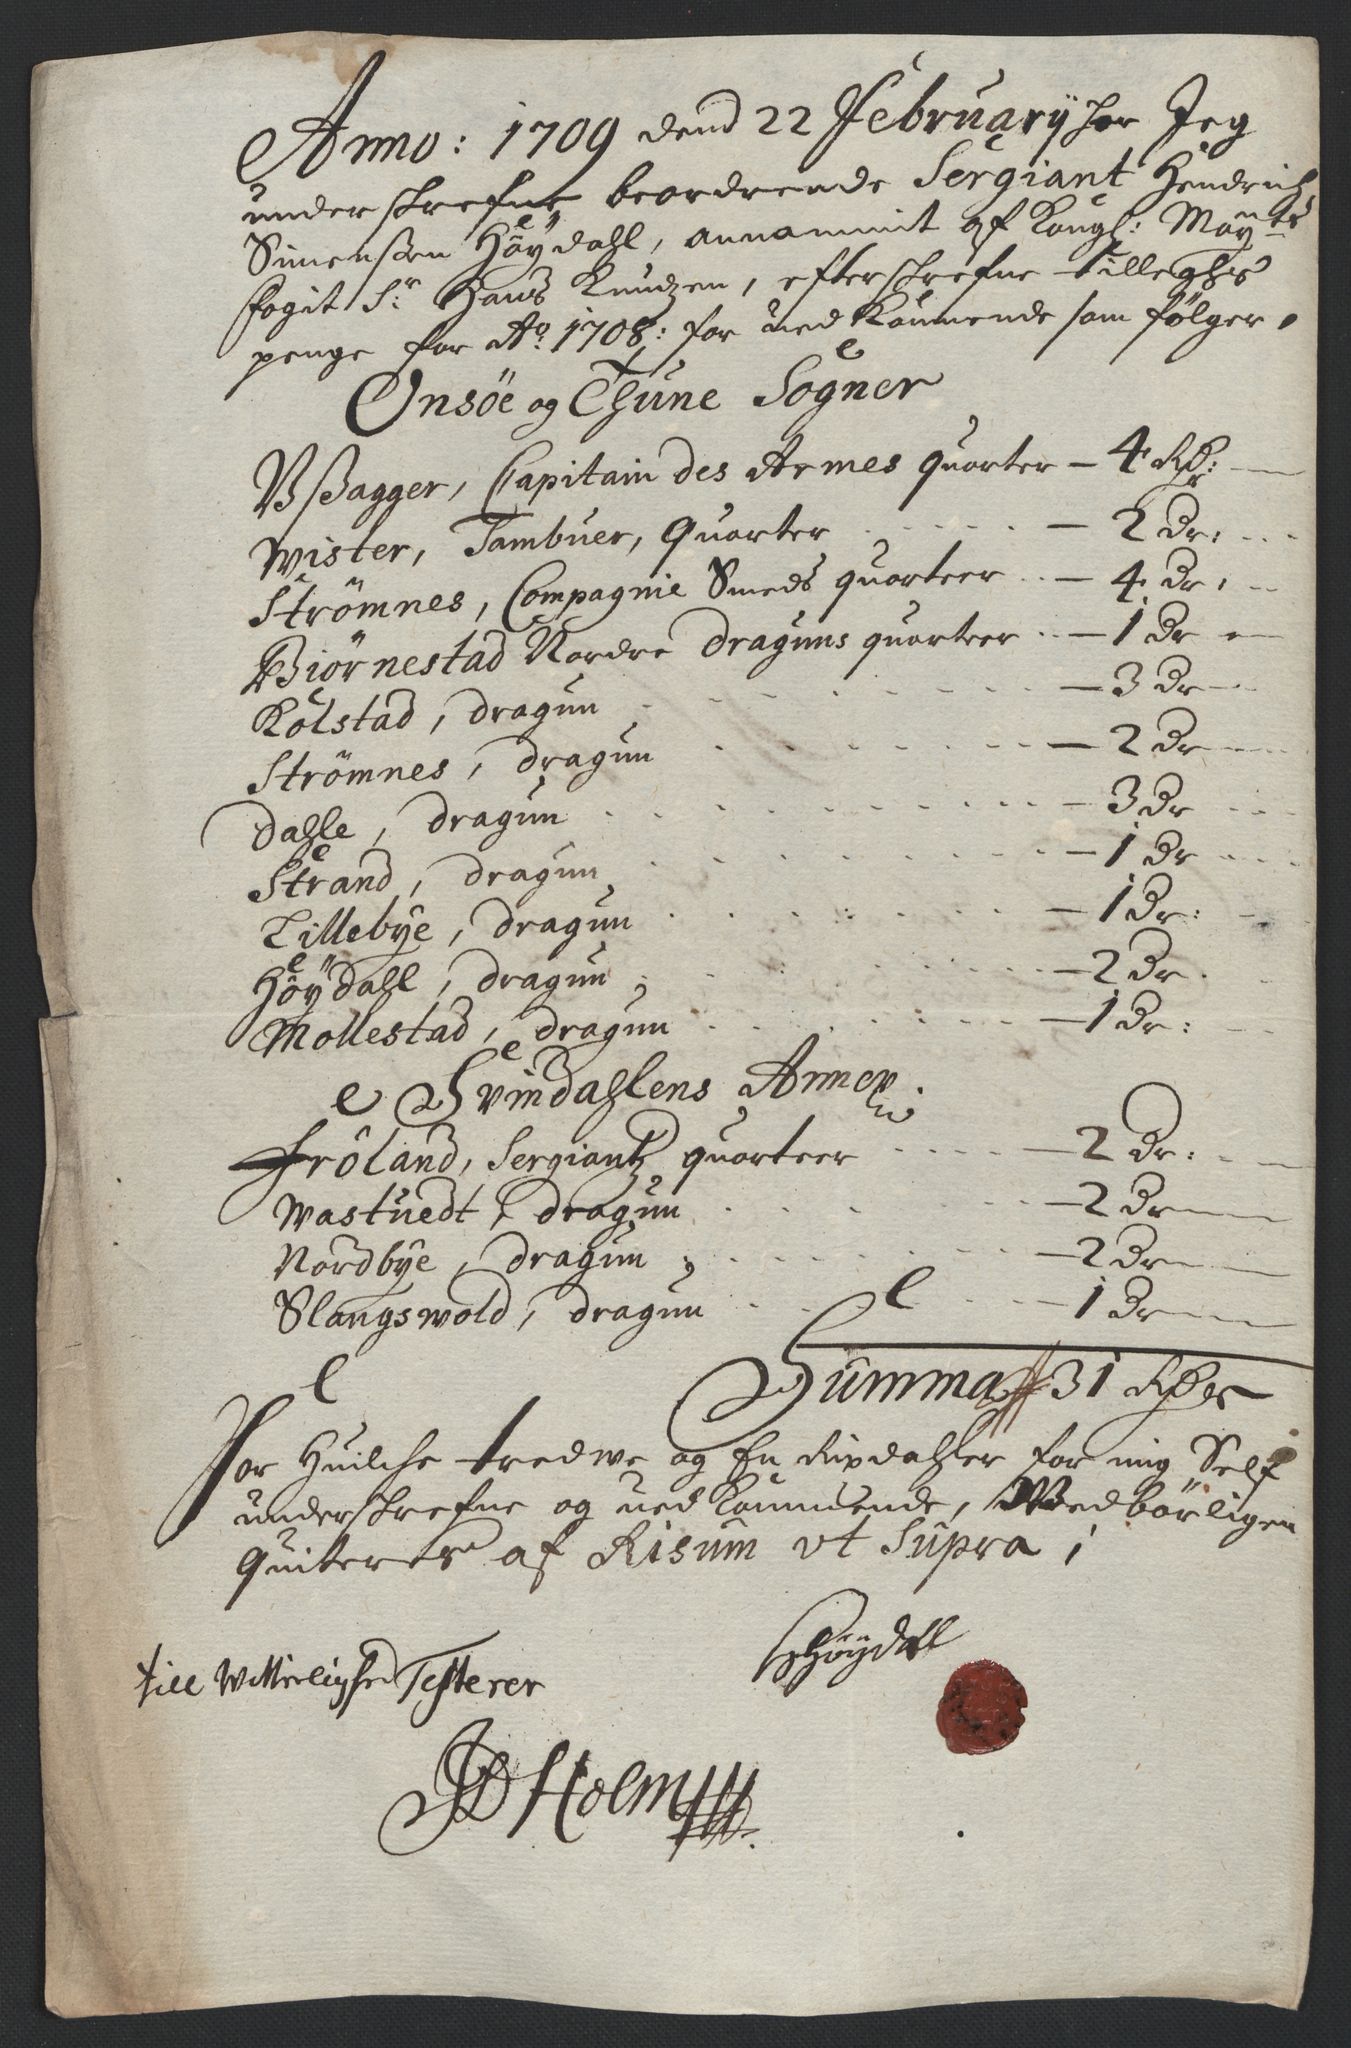 Anno: 1709 dend 22 February har Jeg
underskrefne beordrende Sergiant Hendrich
Simenssen Höydahl, annammit af Kongl: Mayts
fogit Sr: Hans Knudzen, efterskrefne tilleghs
penge for Ao: 1708: for ved Kommende som fölger,
Onsöe og Thune Sogner
Capitain des Armes quarter – 4 Rdr:
Wister, Tambuer, Quarter – 2 Dr:
Strömnes, Compagnie Smeds quarteer – 4 Dr:
Biörnestad Nordre draguns quarteer – 1 Dr
Kolstad, dragun – 3 Dr
Strömnes, dragun – 2 Dr
Dahle, dragun – 3 Dr
Strand, dragun – 1 Dr
Lillebye, dragun – 1 Dr:
Höydahl, dragun – 2 Dr.
Mollestad, dragun – 1 Dr:
Svindahlens Annex
Fröland, Sergiantz quarteer – 2 Dr:
Wastuedt, dragun – 2 Dr
Nordbye, dragun – 2 Dr
Slangswold, dragun – 1 Dr
Summa 31 Rdr
For Huilche tredwe og En Rixdahler for mig Self
underskrefne og ved Kommende, Wedbörligen
Quiteres af Risum vt Supra,
Höydall
till Witterlighed Testerer
Holm